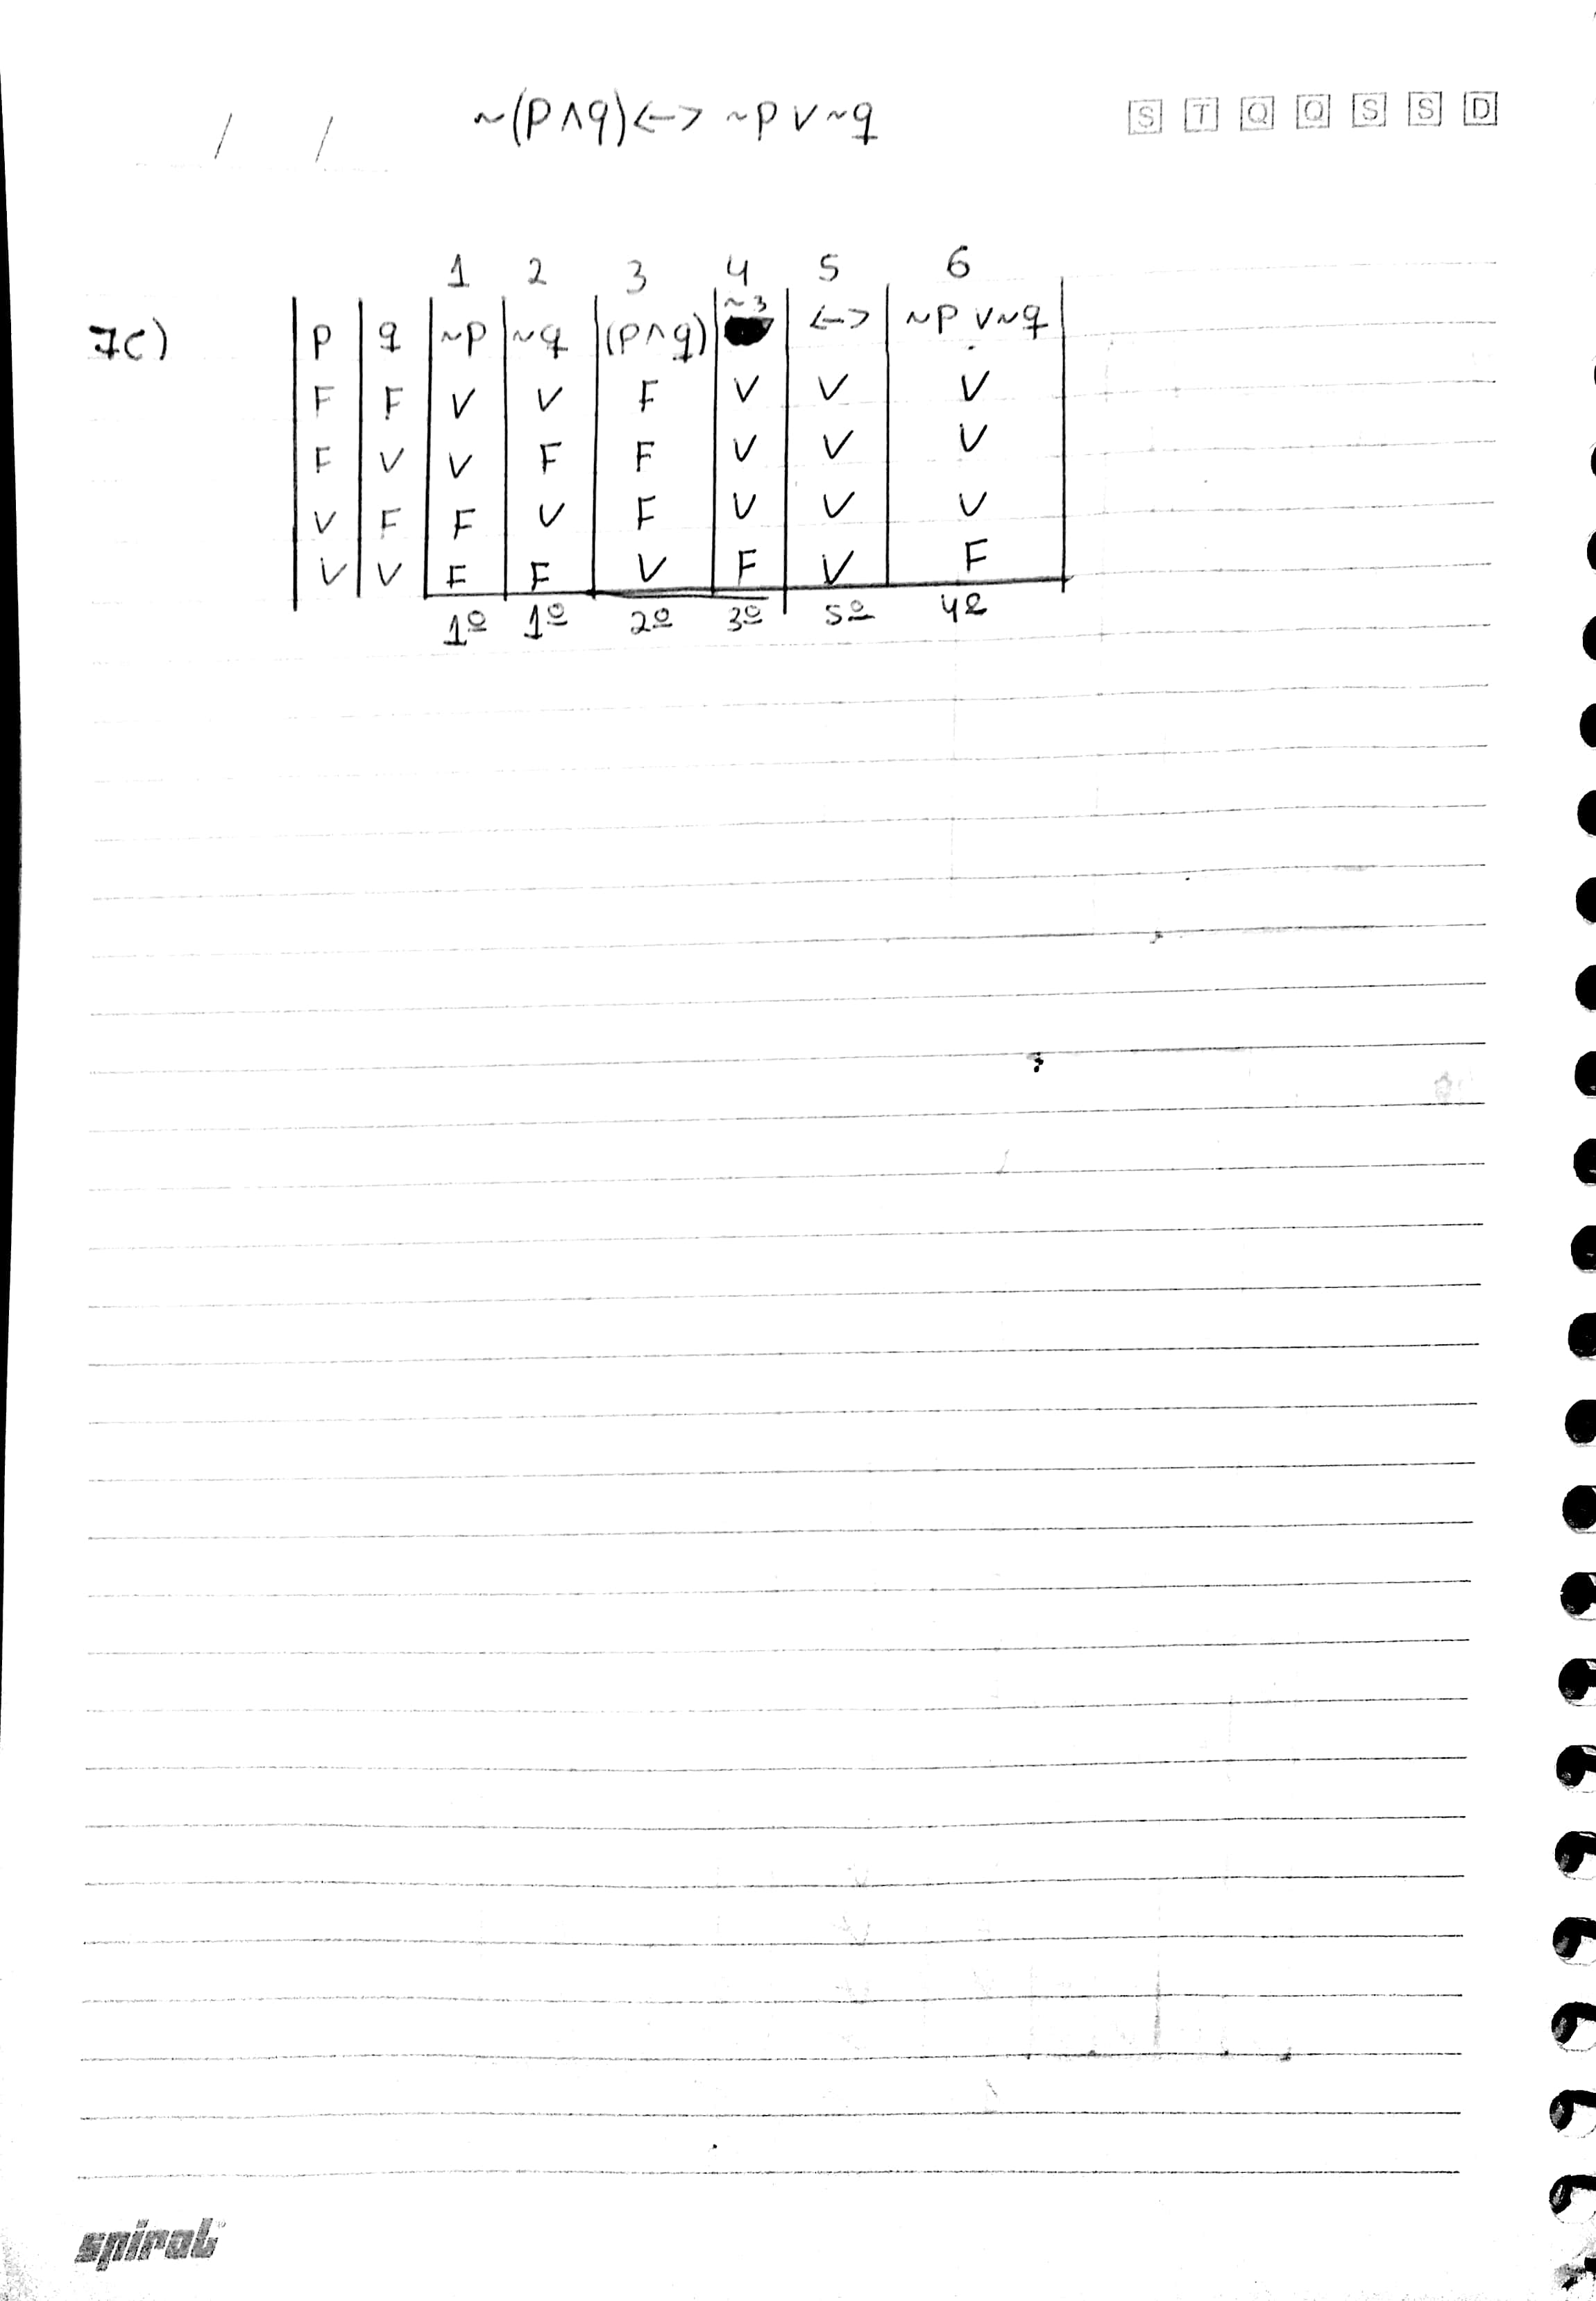 / / ~(p∧q)<-> ~p v ~q S T Q Q S S D
1 2 3 4 5 6
7c) p q ~p ~q (p∧q) ~3 <-> ~p v ~q
F F V V F V V V
F V V F F V V V
V F F V F V V V
V V F F V F V F
1º 1º 2º 3º 5º 4º
spiral